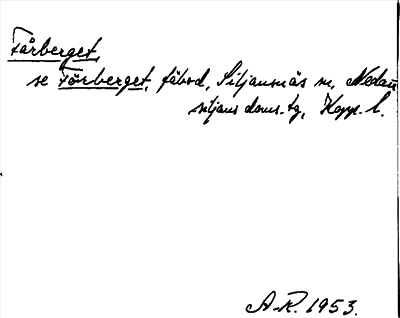 Fårberget,
se Förberget, fäbod, Siljansnäs sn, Nedan
siljans doms. tg, Kopp. l.
A.R. 1953.